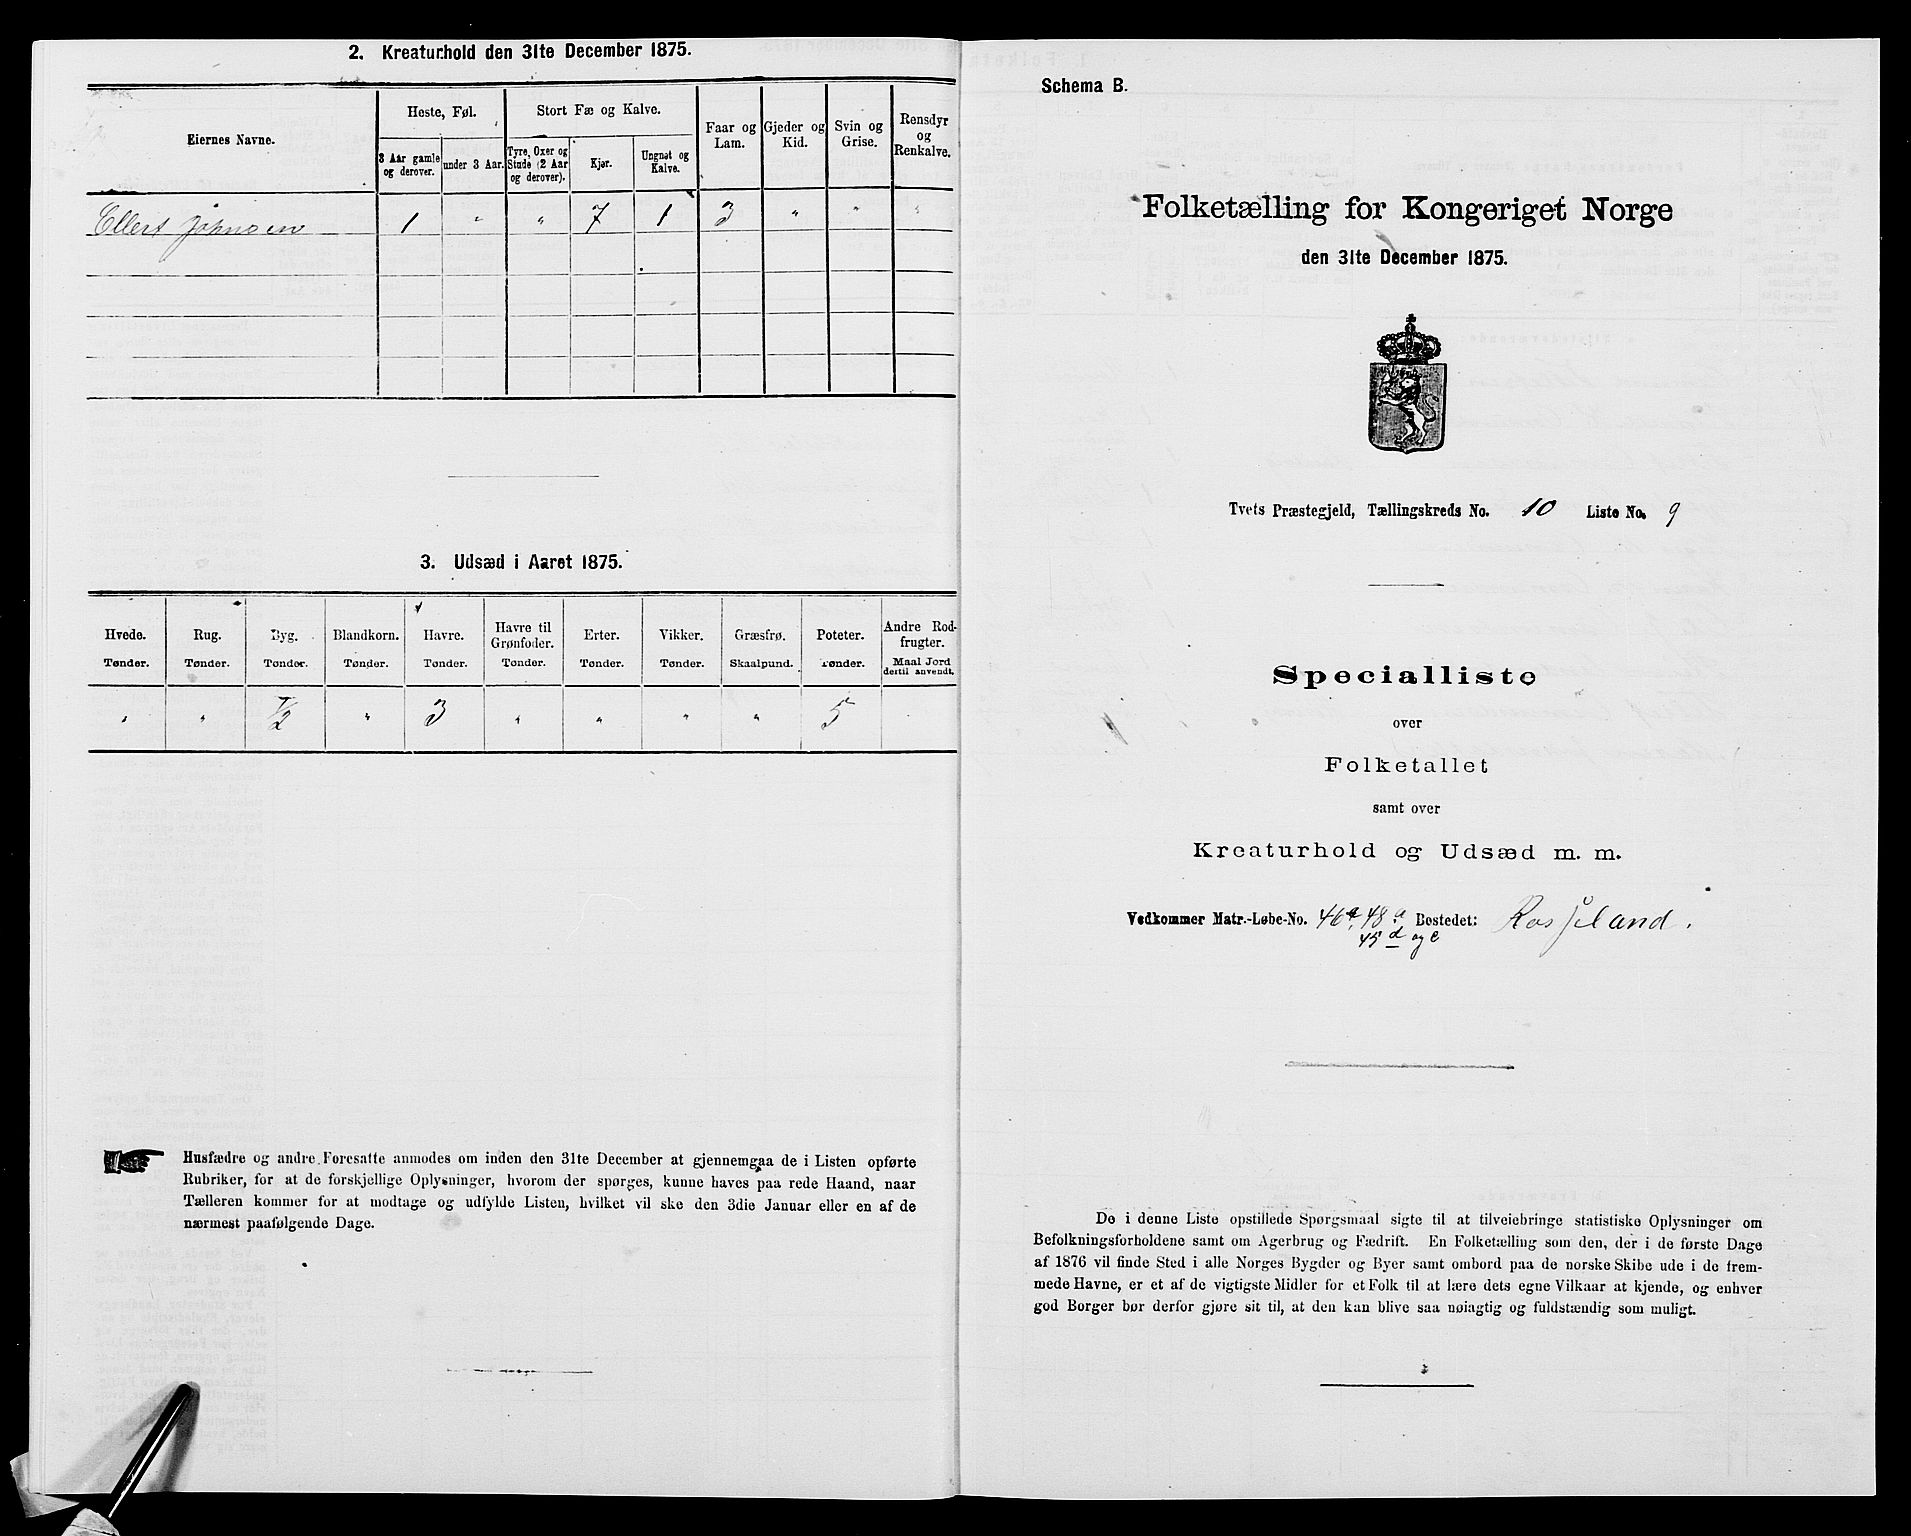 2. Kreaturhold den 31te December 1875.
Eiernes Navne.
Heste, Føl.
Stort Fæ og Kalve.
Faar og Lam.
Gjeder og Kid.
Svin og Grise.
Rensdyr og Renkalve.
3 Aar gamle og derover.
under 3 Aar.
Tyre, Oxer og Stude (2 Aar og derover).
Kjør.
Ungnøt og Kalve.
Ellert Johnsen 1 " " 7 1 3 " " "
3. Udsæd i Aaret 1875.
Hvede. Rug. Byg. Blandkorn. Havre. Havre til Grønfoder. Erter. Vikker. Græsfrø. Poteter. Andre Rodfrugter.
Tønder. Tønder. Tønder. Tønder. Tønder. Tønder. Tønder. Tønder. Skaalpund. Tønder. Maal Jord dertil anvendt.
" " 1/2 " 3 " " " " 5
Husfædre og andre Foresatte anmodes om inden den 31te December at gjennemgaa de i Listen opførte
Rubriker, for at de forskjellige Oplysninger, hvorom der spørges, kunne haves paa rede Haand, naar
Tælleren kommer for at modtage og udfylde Listen, hvilket vil ske den 3die Januar eller en af de
nærmest paafølgende Dage.
Schema B.
Folketælling for Kongeriget Norge
den 31te December 1875.
Tvets Præstegjeld, Tællingskreds No. 10 Liste No. 9
Specialliste
over
Folketallet
samt over
Kreaturhold og Udsæd m. m.
Vedkommer Matr.-Løbe-No. 46a, 48a Bostedet: Rosseland.
45 d og e
De i denne Liste opstillede Spørgsmaal sigte til at tilveiebringe statistiske Oplysninger om
Befolkningsforholdene samt om Agerbrug og Fædrift. En Folketælling som den, der i de første Dage
af 1876 vil finde Sted i alle Norges Bygder og Byer samt ombord paa de norske Skibe ude i de frem-
mede Havne, er et af de vigtigste Midler for et Folk til at lære dets egne Vilkaar at kjende, og enhver
god Borger bør derfor gjøre sit til, at den kan blive saa nøiagtig og fuldstændig som muligt.